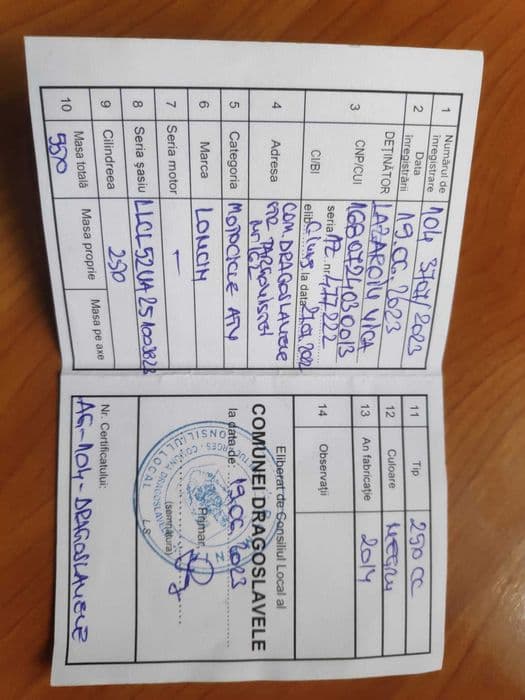 1 Numărul de înregistrare 104 3707/2023
2 Data înregistrării 19.06.2023
DEȚINĂTOR LAZAROIU VICA
3 CNP/CUI 1680724030013
CI/BI seria AZ nr 477222
elib la data
4 Adresa COM. DRAGOSLAVELE
5 Categoria MOTOCICLE ATV
6 Marca LONCIN
7 Seria motor —
8 Seria șasiu
9 Cilindreea 250
10 Masa totală Masa proprie Masa pe axe
550
11 Tip 250 CC
12 Culoare NEGRU
13 An fabricație 2014
14 Observații
Eliberat de Consiliul Local al
COMUNEI DRAGOSLAVELE
la data de: 19.06.2023
Primar,
(semnătura)
L.S.
Nr. Certificatului:
AG-104-DRAGOSLAVELE